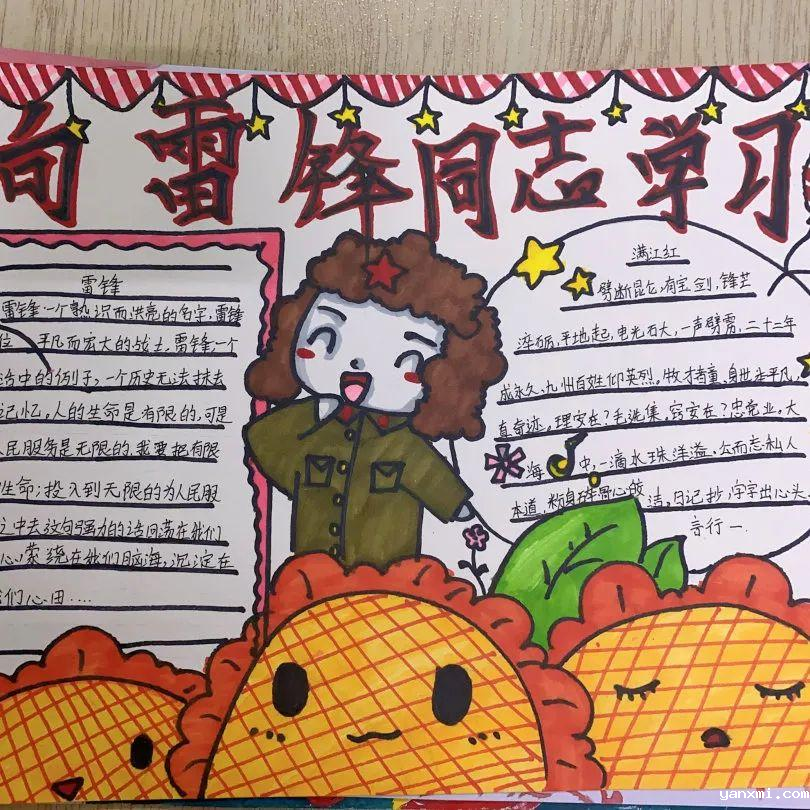 向雷锋同志学习
雷锋
雷锋,一个熟识而洪亮的名字,雷锋
位 平凡而宏大的战士,雷锋,一个
活中的例子,一个历史无法抹去
记忆。人的生命是有限的,可是
人民服务是无限的,我要把有限
生命;投入到无限的为人民服
之中去这句强力的话回荡在我们
心,萦绕在我们脑海,沉淀在
们心田....
满江红
劈断昆仑,有宝剑,锋芒
淬砺,平地起,电光石火,一声劈雷,二十三年
成永久,九州百姓仰英烈,牧才童,身世 平凡
真奇迹。理安在?毛选集,窍安在?忠党业。大
海中,一滴水珠洋溢,公而忘私人
本道,粉身碎骨心皎洁,日记抄,字字出心头
言行一.
yanxmi.com